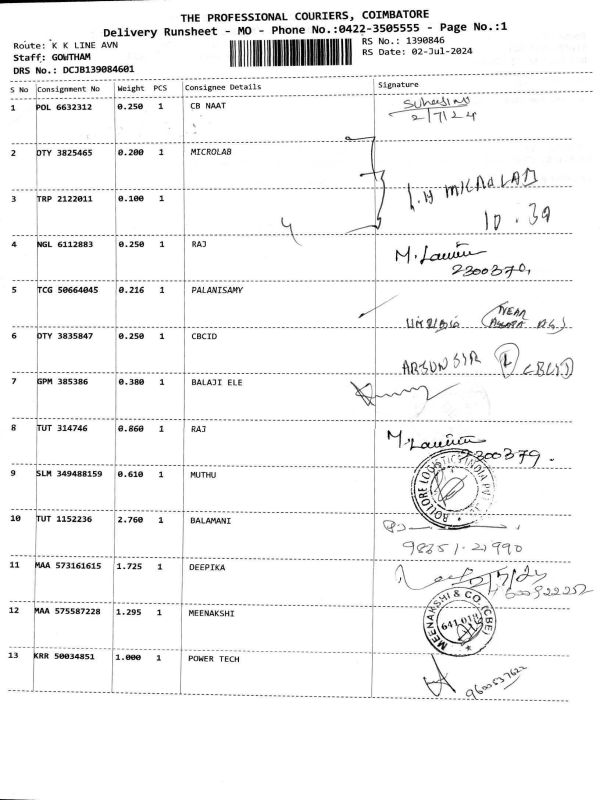 THE PROFESSIONAL COURIERS, COIMBATORE
Delivery Runsheet - MO - Phone No.:0422-3505555 - Page No.:1
Route: K K LINE AVN
RS No.: 1390846
Staff: GOWTHAM
RS Date: 02-Jul-2024
DRS No.: DCJB139084601
S No Consignment No Weight PCS Consignee Details Signature
1 POL 6632312 0.250 1 CB NAAT
2/7/24
2 DTY 3825465 0.200 1 MICROLAB
3 TRP 2122011 0.100 1
MICROLAB
10.39
4 NGL 6112883 0.250 1 RAJ
2300379,
5 TCG 50664045 0.216 1 PALANISAMY
(NEAR
6 DTY 3835847 0.250 1 CBCID
ARJUN SIR
7 GPM 385386 0.380 1 BALAJI ELE
8 TUT 314746 0.860 1 RAJ
2300379.
9 SLM 349488159 0.610 1 MUTHU
BOLLORE LOGISTICS INDIA PVT
10 TUT 1152236 2.760 1 BALAMANI
98651-21990
11 MAA 573161615 1.725 1 DEEPIKA
2/7/24
12 MAA 575587228 1.295 1 MEENAKSHI
MEENAKSHI & CO. (CBE)
13 KRR 50034851 1.000 1 POWER TECH
9600537622